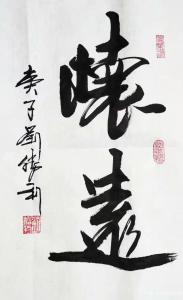 懷遠
庚子劉勝利